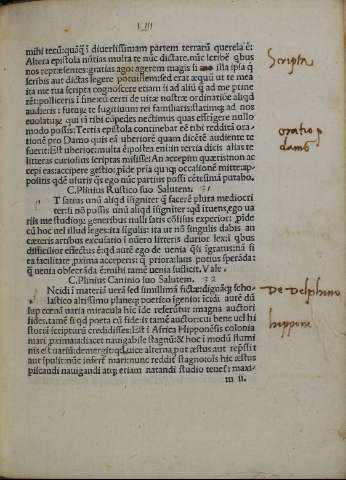 VIII
mihi tecū: quāq̃ ī diuersissimam partem terrarū querela ē:
Altera epistola nūtias multa te nūc dictare. nūc scribē qbus
nos repræsentes: gratias ago: agerem magis si me illa ipsa q̄
scribis aut dictas legere potuissem: sed erat æquū ut te mea
ita me tua scripta cognoscere etiam ii ad aliū q̃ ad me ptine
rēt: polliceris ī fine cū certi de uitæ nostræ ordinatiōe aliqd
audieris: futurū te fugitiuum rei familiaris: statimq; ad nos
euolaturū qui iā tibi cōpedes nectimus quas effrigere nullo
modo possis: Tertia epistola continebat eē tibi redditā ora
tionē pro Damo quis eā uberiorē quam dictēte audiente te
fuerit: Est uberior: multa ē postea enī: in tertia dicis alias te
litteras curiosius scriptas misisse: An accepim quæris: non ac
cepi eas: accipere gestio: pide pria quaq; occasione mitte: ap
positis qdē usuris quas ego nūc partius possi cētesimā putabo.
C. Plinius Rustico suo Salutem. 31
T satius unū aliqd īsigniter q̃ facere plura mediocri
ter: si nō possis unū aliqd īsigniter: qd ītuens, ego ua
riis me studiorū generibus nulli satis cōfisus experior: pide
cū hoc uel illud leges: ita sigulis: ita ut nō singulis dabis an
cæteris artibus excusatio ī nūero litteris durior lex: ī qbus
difficilior effectus ē: qd autē ego de uenia q̄si īgratus: nā si
ea facilitate pxima acceperis: q̄ priora: laus potius sperāda:
q̃ uenia obsecrāda ē: mihi tamē uenia suficit. Vale.
C. Plinius Caninio suo Salutem. 32
Ncidi ī materiā uerā sed simillimā fictæ: dignāq; scho
lastico altissimo planeq; poetico īgenio: īcidi autē dū
sup cœnā uaria miracula hic īde referūtur: magna auctori
fides. tamē si qd poeta cū fide: is tamē auctor: cui bene uel hi
storiā scripturū credidisses: Est ī Africa Hipponēsis colonia
mari pxima: adiacet nauigabile stagnū: & hoc ī modū flumi
nis æstuariū: demergit: qd uice alterna, put æstus aut repssit
aut īpulit: nūc īnfert mari: nunc reddit stagno: ois hic æstas
piscandi nauigandi atq; etiam natandi studio tenet: maxi
m ii.
Scripta
oratio p
damo
De Delphino
hippone